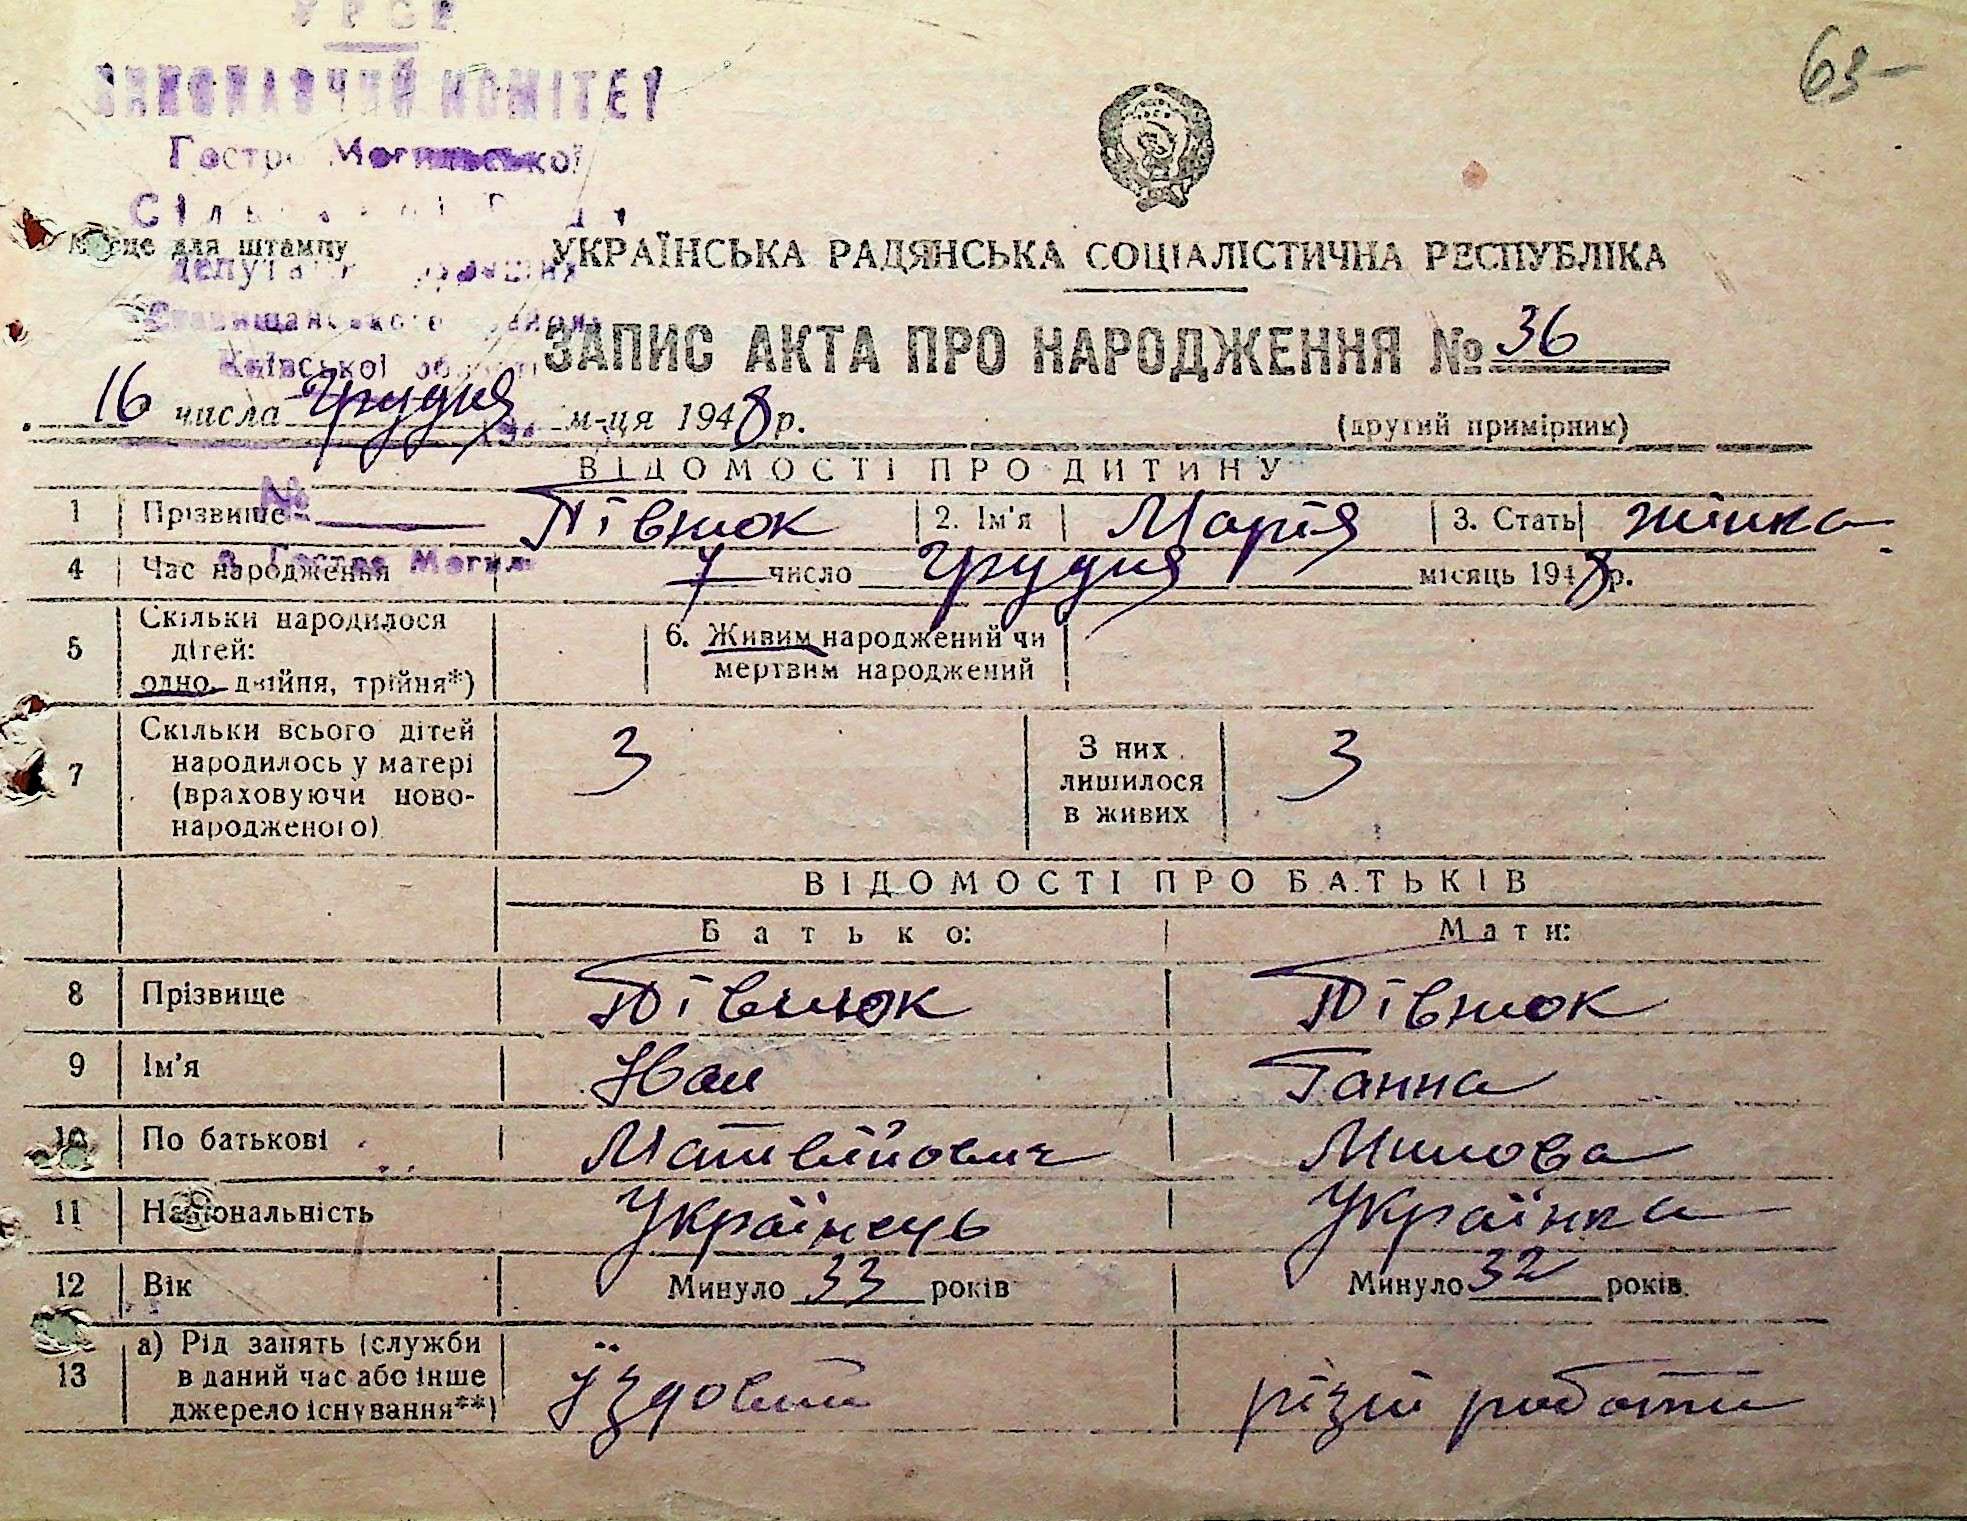 УРСР
63-
ВИКОНАВЧИЙ КОМІТЕТ
Гостро Могильської
Сільської Ради
Місце для штампу
депутатів трудящих
УКРАЇНСЬКА РАДЯНСЬКА СОЦІАЛІСТИЧНА РЕСПУБЛІКА
Ставищанського району
Київської області
ЗАПИС АКТА ПРО НАРОДЖЕННЯ № 36
16 числа Грудня м-ця 1948 р.
(другий примірник)
ВІДОМОСТІ ПРО ДИТИНУ
№
1 Прізвище Півнюк 2. Ім'я Марія 3. Стать жінка
с. Гостра Могила
4 Час народження 7 число Грудня місяць 1948 р.
5 Скільки народилося дітей: одно, двійня, трійня*)
6. Живим народжений чи мертвим народжений
7 Скільки всього дітей народилось у матері (враховуючи ново-народженого) 3
З них лишилося в живих 3
ВІДОМОСТІ ПРО БАТЬКІВ
Батько: Мати:
8 Прізвище Півнюк Півнюк
9 Ім'я Іван Ганна
10 По батькові Матвійович
11 Національність Українець Українка
12 Вік Минуло 33 років Минуло 32 років
13 а) Рід занять (служби в даний час або інше джерело існування**) їздовий різні роботи